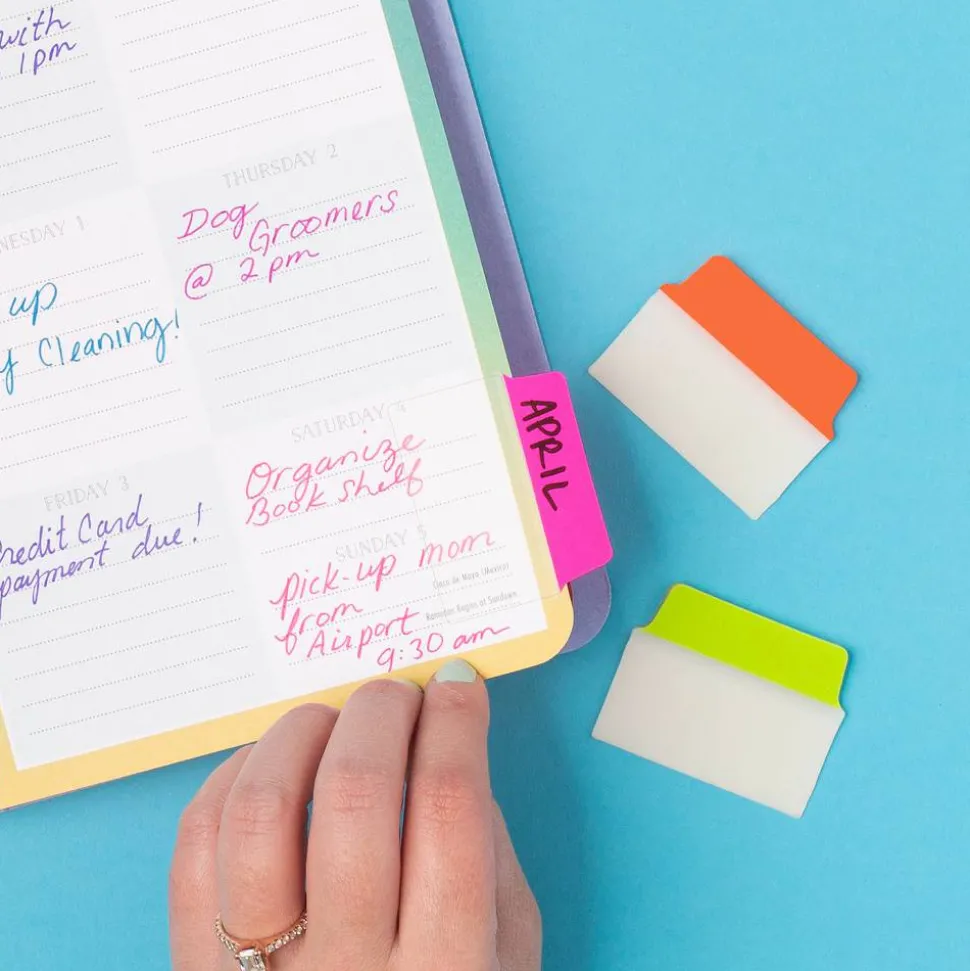 with
1pm
THURSDAY 2
Dog
Groomers
@ 2pm
NESDAY 1
up
y Cleaning!
SATURDAY 4
Organize
Book shelf
APRIL
FRIDAY 3
Credit Card
payment due!
SUNDAY 5
pick-up mom
from
Airport
9:30 am
Cinco de Mayo (Mexico)
Ramadan Begins at Sundown